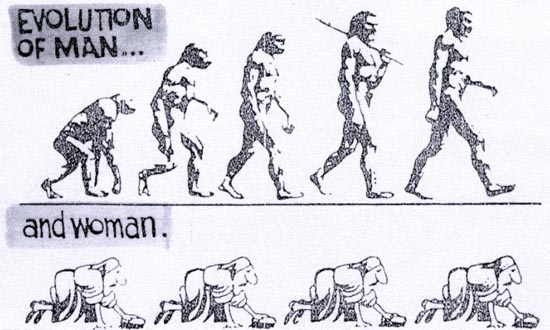 EVOLUTION
OF MAN...
and woman.